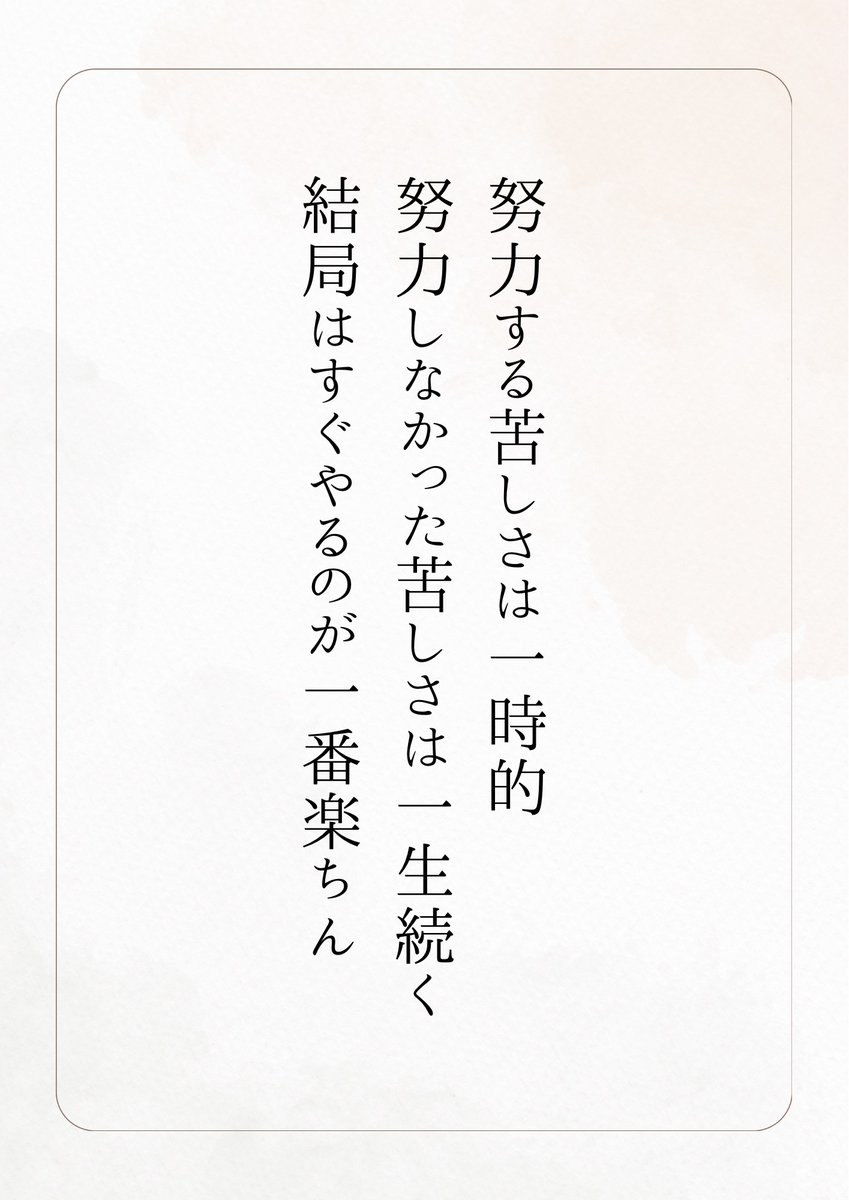 努力する苦しさは一時的
努力しなかった苦しさは一生続く
結局はすぐやるのが一番楽ちん